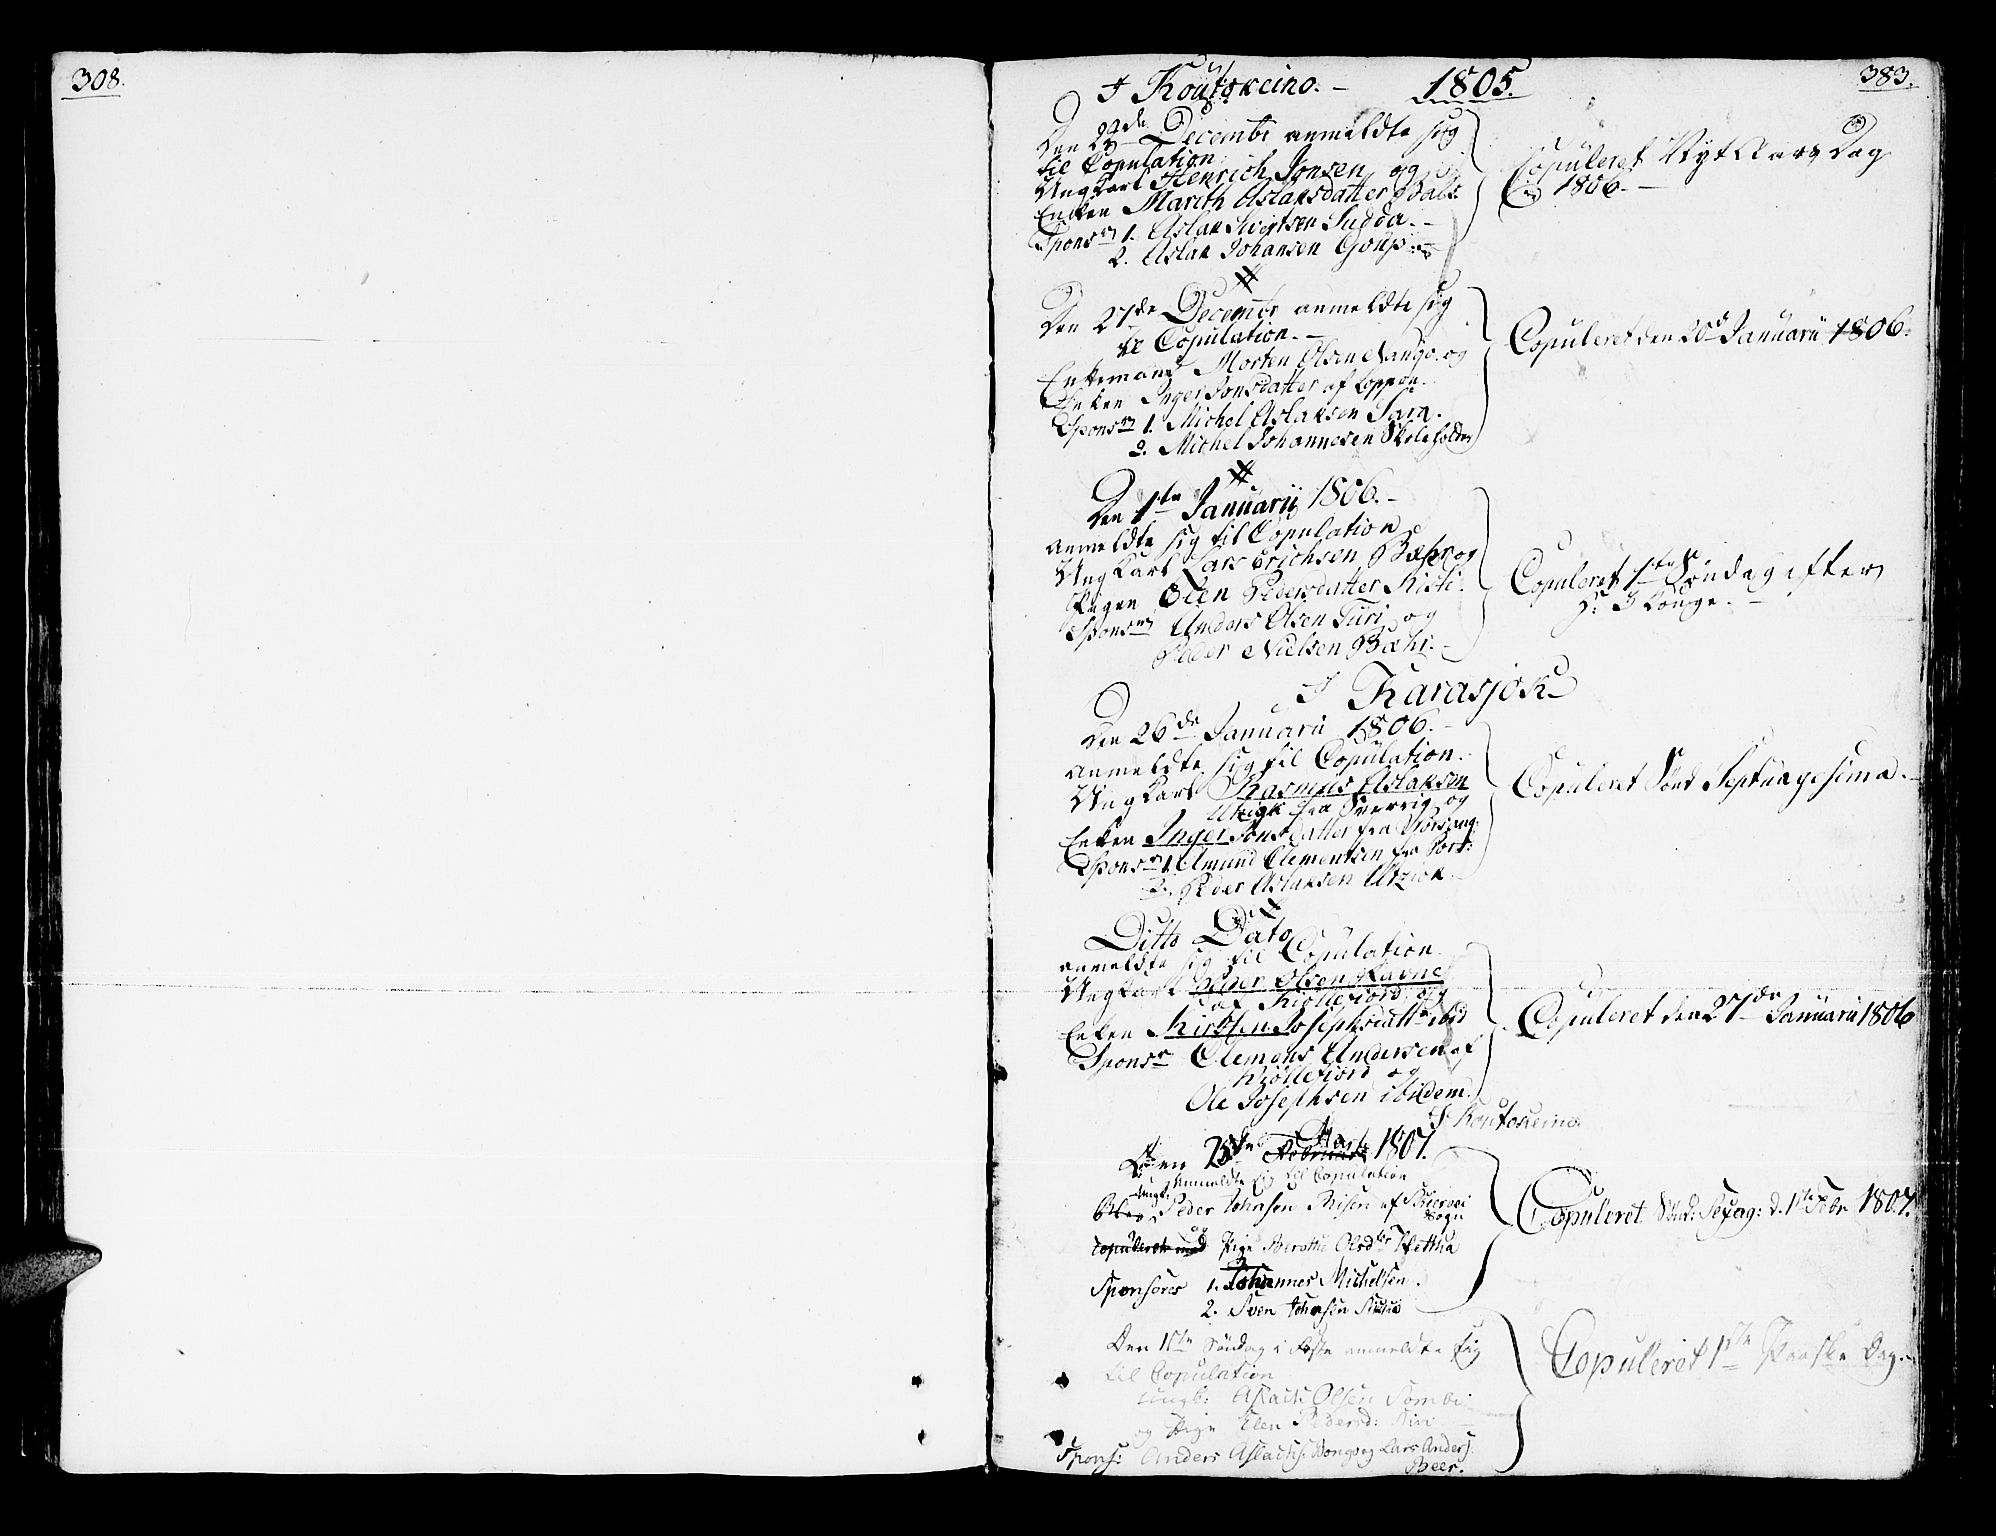 308.
383.
I Koutokeino. – 1805.
Den 29de Decembr anmeldte sig
til Copulation
Ungkarl Henrich Jonsen og
Enken Marith Aslaksdatter Bals.
Sponsrs 1. Aslak Sivertsen Sudda. –
2. Aslak Johansen Goup
Copuleret Nyt Aars Dag
1806. –
Den 27de Decembr anmeldte sig
til Copulation. –
Enkemand Morten Olsen Nango. og
Enken Inger Jonsdatter af Loppen.
Sponsrs 1. Michel Aslaksen Sara.
2. Michel Johannesen Skoleholder
Copuleret den 20de Januarii 1806.
Den 1te Januarii 1806. –
anmeldte sig til Copulation
Ungkarl Lars Erichsen Bæhr og
Pigen Elen Pedersdatter Kisti.
Sponsrs Anders Olsen Turi og
Peder Nielsen Bæhr. –
Copuleret 1ste Søndag efter
H: 3 Konge. –
I Karasjok
Den 26de Januarii 1806. –
anmeldte sig til Copulation.
Ungkarl Rasmus Aslaksen
Utziok fra Sverrig og
Enken Inger Jonsdatter fra Porsang:
Sponsrs 1. Amund Clementsen fra Pors:
2. Peder Aslaksen Utziok.
Copuleret Sønd Septuagesima. –
Ditto Dato
anmeldte sig til Copulation.
Ungkarl Peder Olsen Ravne
af Kiøllefiord og
Enken Kirsten Josephsdattr ibid
Sponsr Clemens Andersen af
Kiøllefiord og
Ole Josephsen ibidem.
Copuleret den 27de Januarii 1806
I Koutokeino
Den 25de Februar 1807.
Anmeldte sig til Copulation
Ungk. Peder Johnsen af
Sogn
copuleret med og Pige Berethe Olsdtr
Sponsores 1. Johannes Michelsen.
2. Sven Johnsen
Copuleret Sønd: Sexag: d. 1ste Febr 1807.
Den 1ste Søndag i Faste anmeldte sig
til Copulation
Ungk: Aslach Olsen Sombi
og Pige Elen Pedersd: Kiri
Spons: Anders Aslachs: Wongo og Lars Anders:
Beer.
Copulleret 1ste Paaske Dag. –